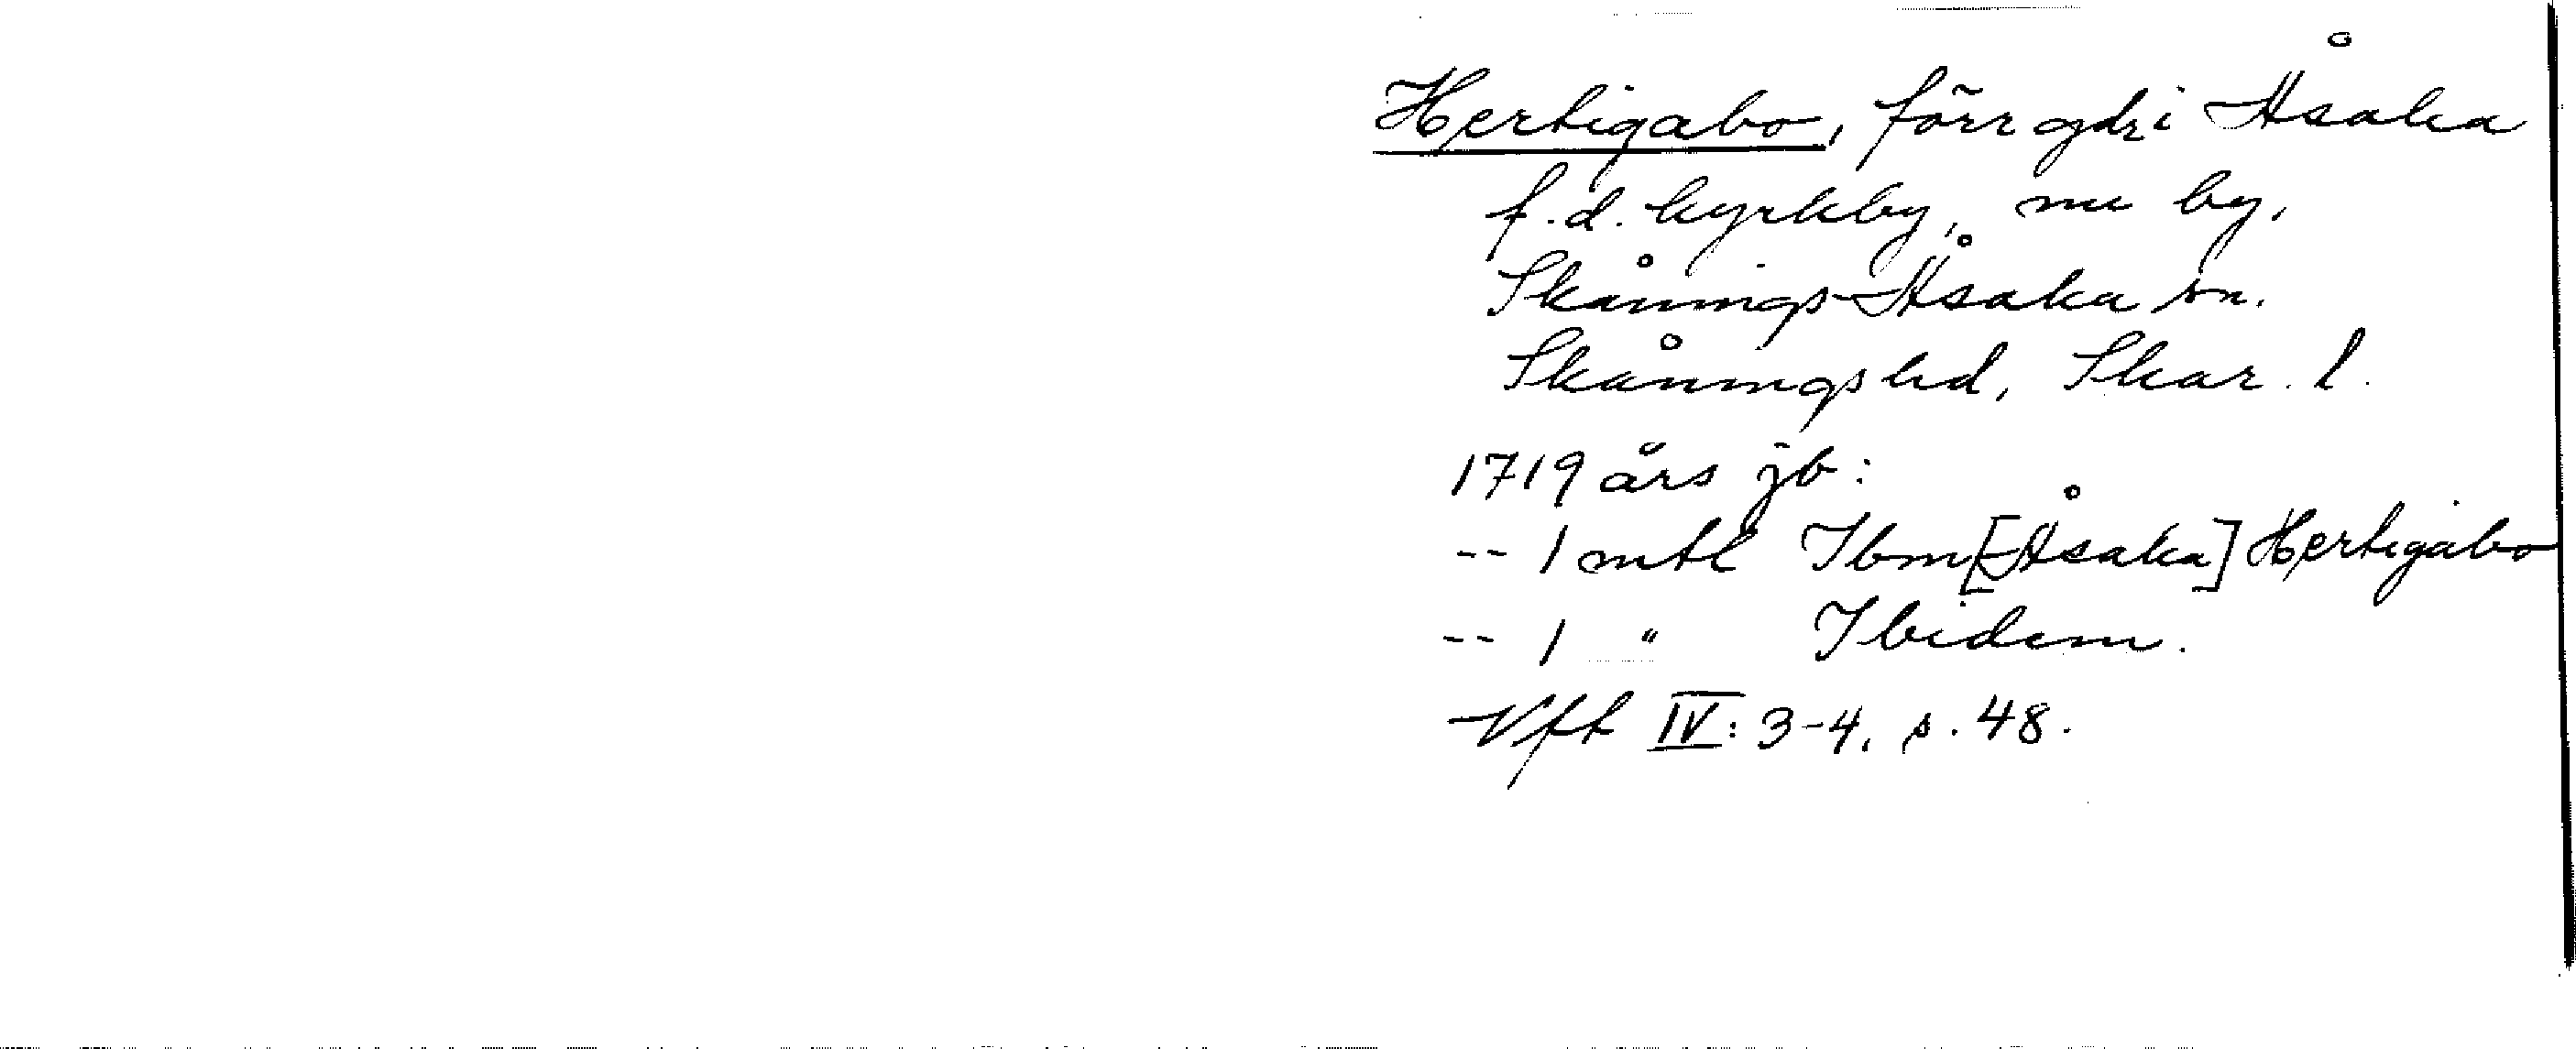 Hertigabo, förr gdr i Åsaka
f.d. kyrkby, nu by,
Skånings-Åsaka sn.
Skånings hd, Skar. l.
1719 års jb:
-- 1 mtl Ibm [Åsaka] Hertigabo
-- 1 " Ibidem.
Vft IV: 3-4, s. 48.